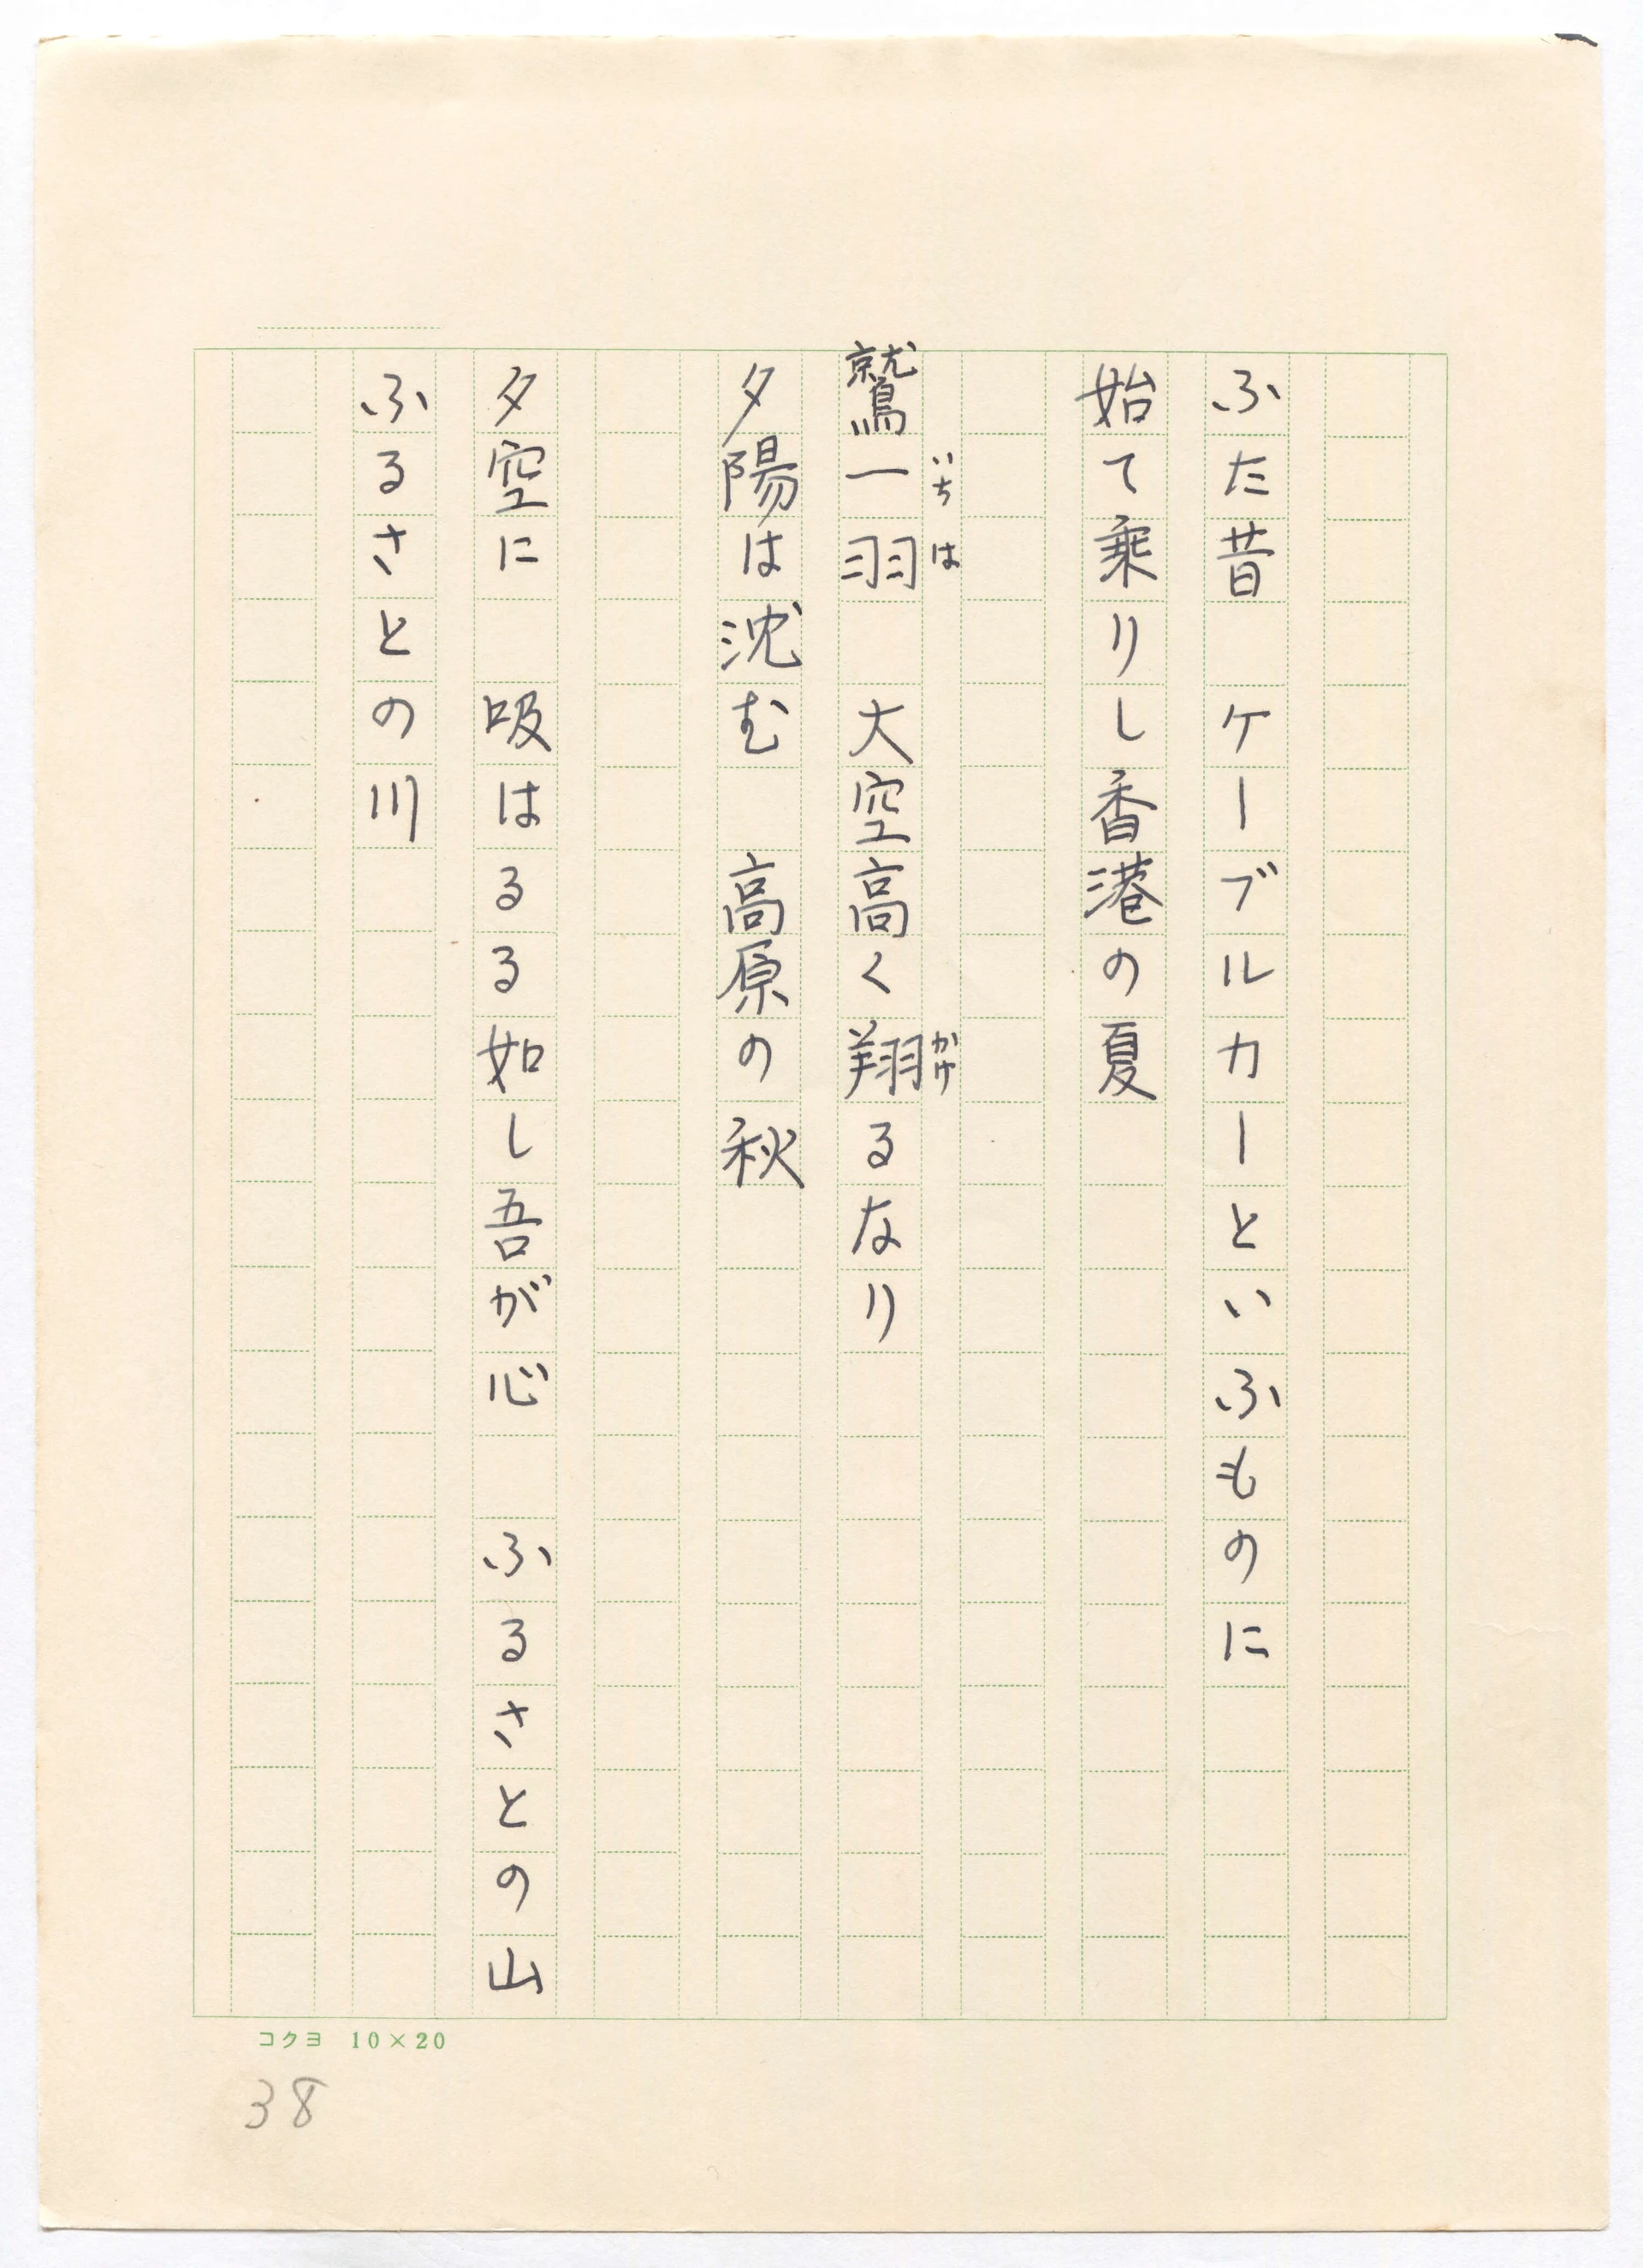 ふた昔　ケーブルカーといふものに
始て乗りし香港の夏
鷲一羽　大空高く翔るなり
いちは
かけ
夕陽は沈む　高原の秋
夕空に　吸はるる如し吾が心　ふるさとの山
ふるさとの川
コクヨ　10×20
38